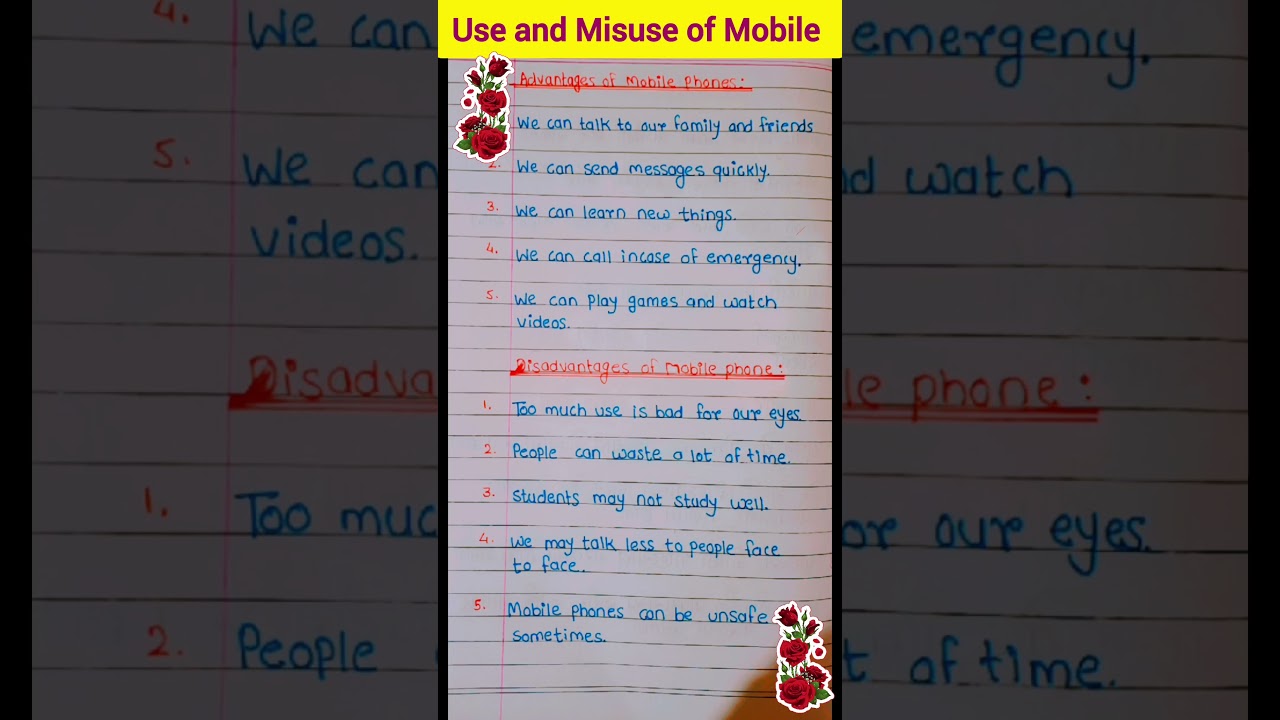 Use and Misuse of Mobile
Advantages of Mobile Phones:
We can talk to our family and friends
2. We can send messages quickly.
3. We can learn new things.
4. We can call incase of emergency.
5. We can play games and watch
videos.
Disadvantages of Mobile phone:
1. Too much use is bad for our eyes.
2. People can waste a lot of time.
3. Students may not study well.
4. We may talk less to people face
to face.
5. Mobile phones can be unsafe
sometimes.
4. We can
emergency.
5. We can
nd watch
videos.
Disadva
le phone:
1. Too muc
or our eyes.
2. People
t of time.